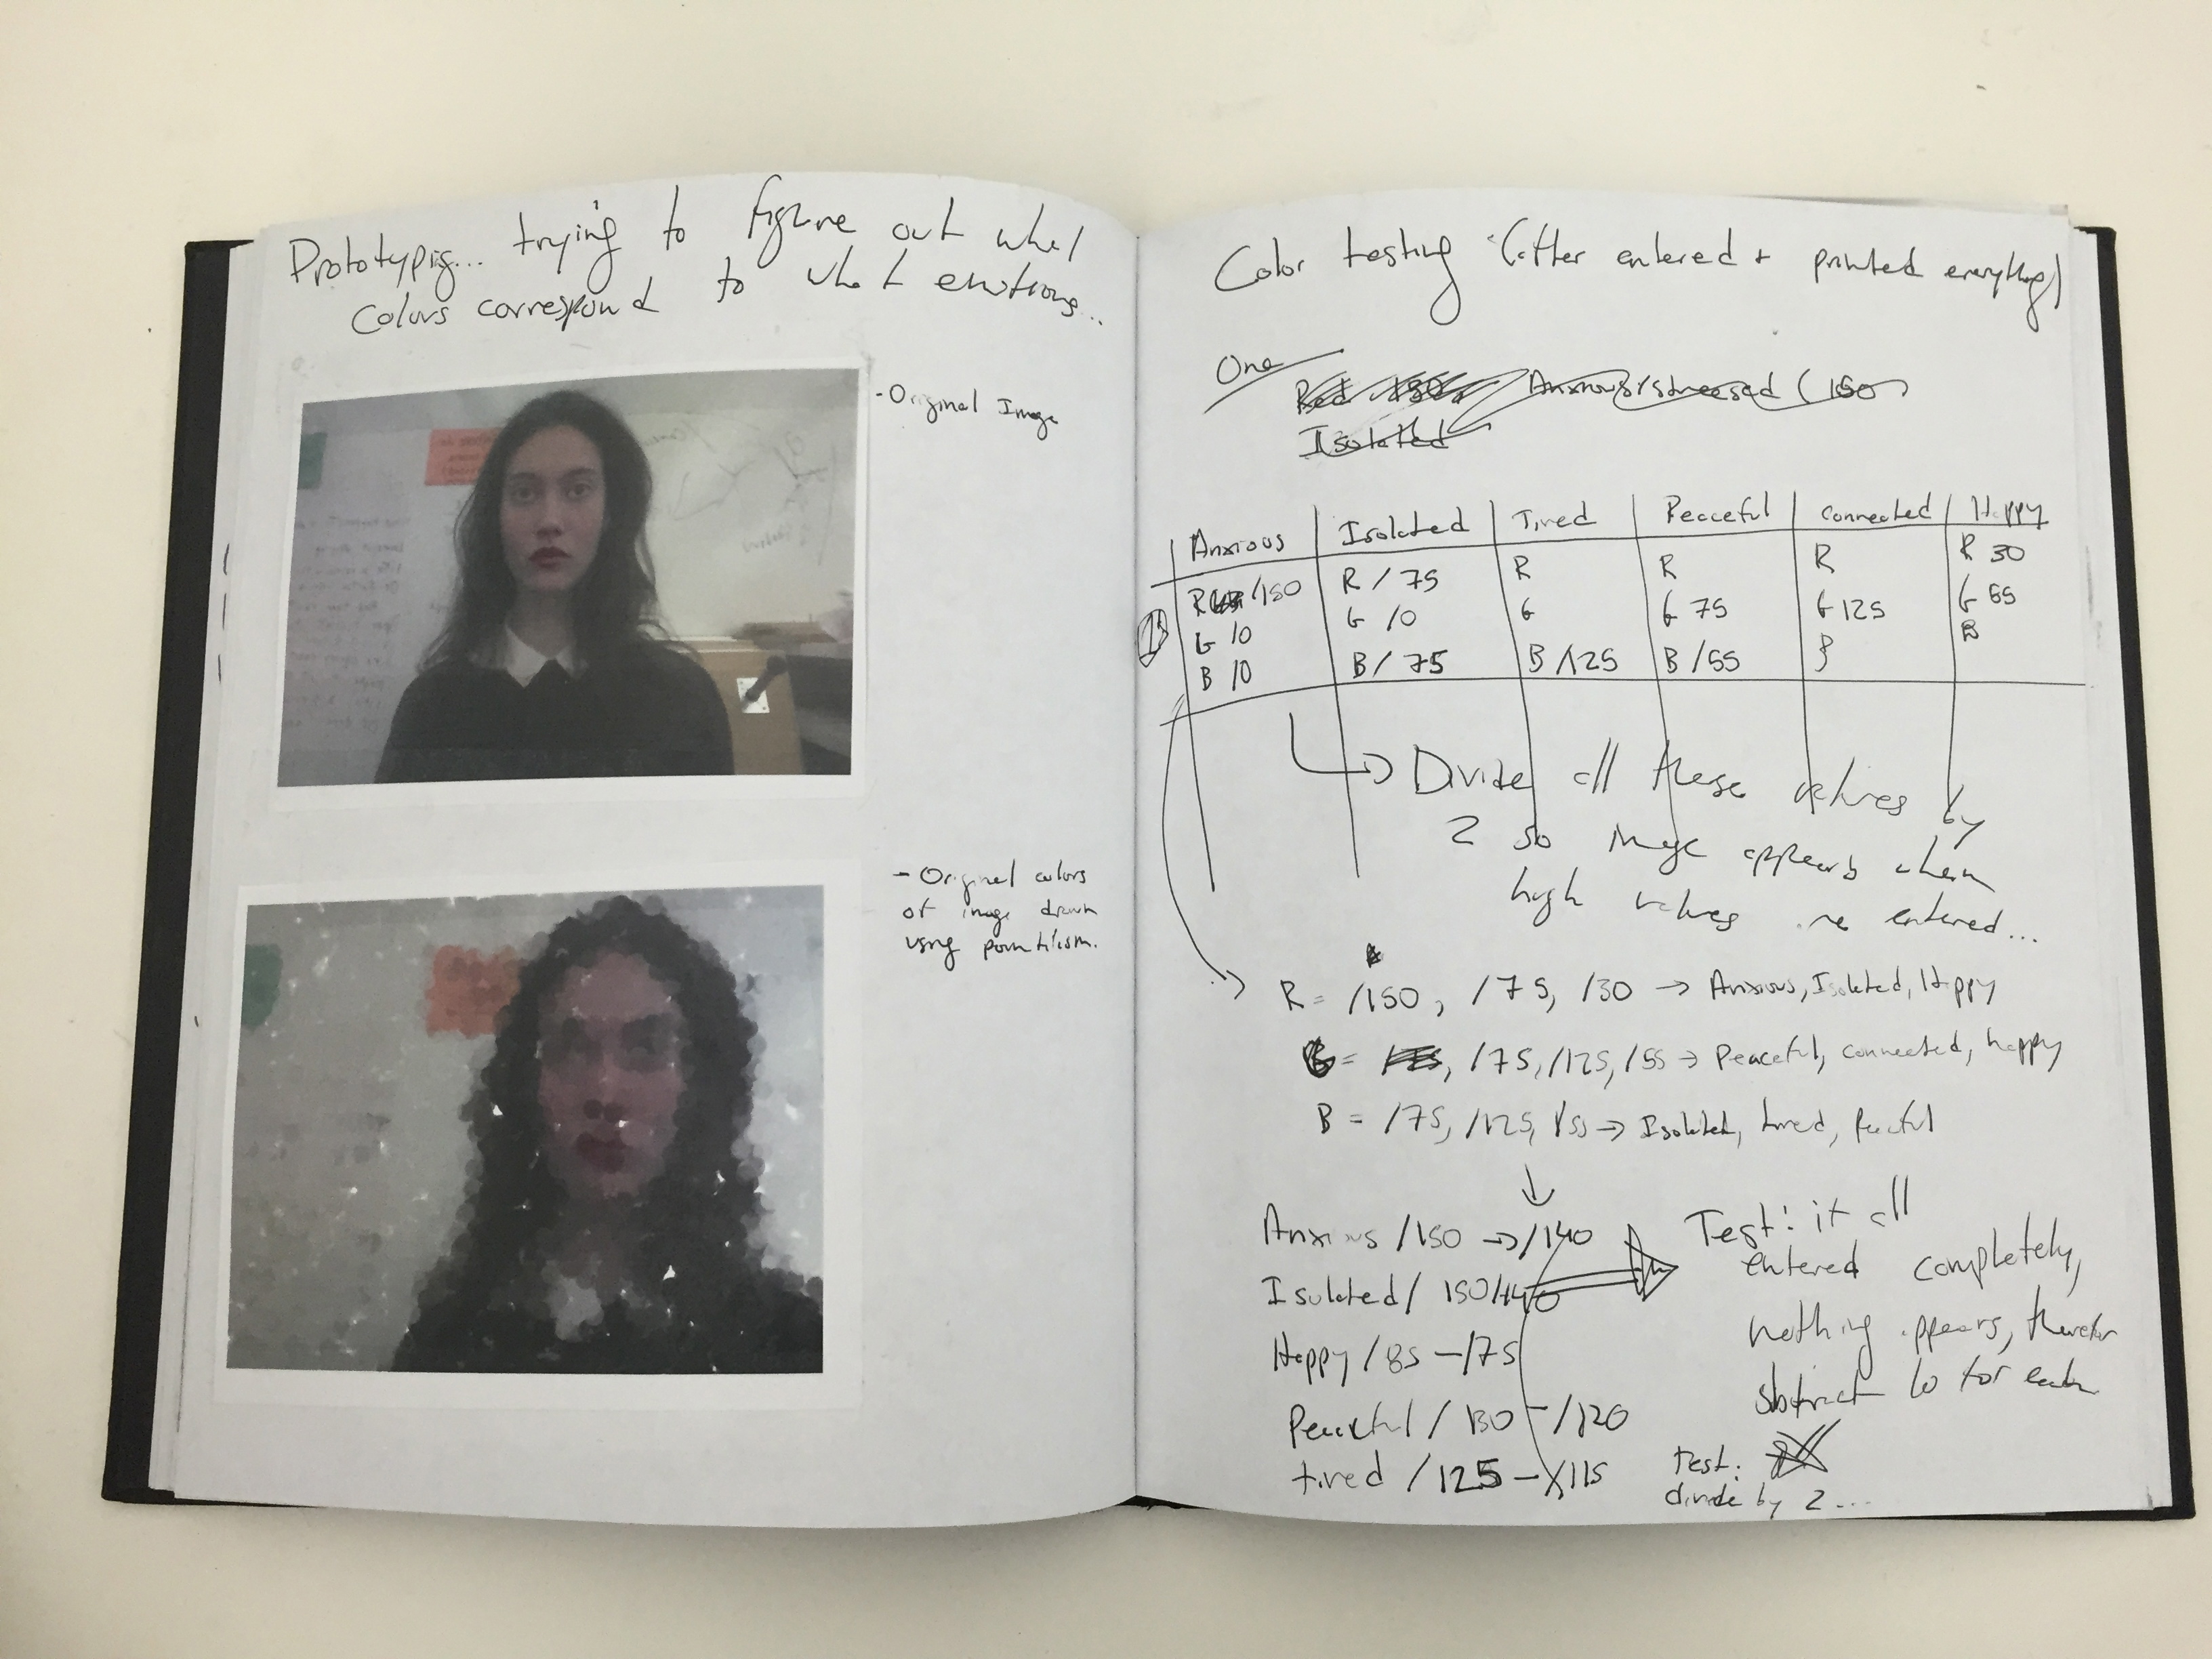 Prototyping... trying to figure out what
colors correspond to what emotions...
- Original Image
- Original colors
of image drawn
using pointilism.
Color testing (after entered + printed everything)
One
Anxious/stressed (150
Isolated
Anxious | Isolated | Tired | Peaceful | Connected | Happy
R /150 | R / 75 | R | R | R | R 30
G /0 | G /0 | G | G 75 | G 125 | G 55
B /0 | B / 75 | B /125 | B /55 | B | B
→ Divide all these values by
2 so image appears when
high values are entered...
R = /150, /75, /30 → Anxious, Isolated, Happy
G = /75, /125, /55 → Peaceful, connected, happy
B = /75, /125, /55 → Isolated, tired, Peaceful
Anxious /150 → /140
Isolated / 150/140
Happy / 85 - /75
Peaceful / 130 - /120
tired / 125 - /115
Test: it all
entered completely,
nothing appears, therefor
subtract 10 for each
test:
divide by 2...